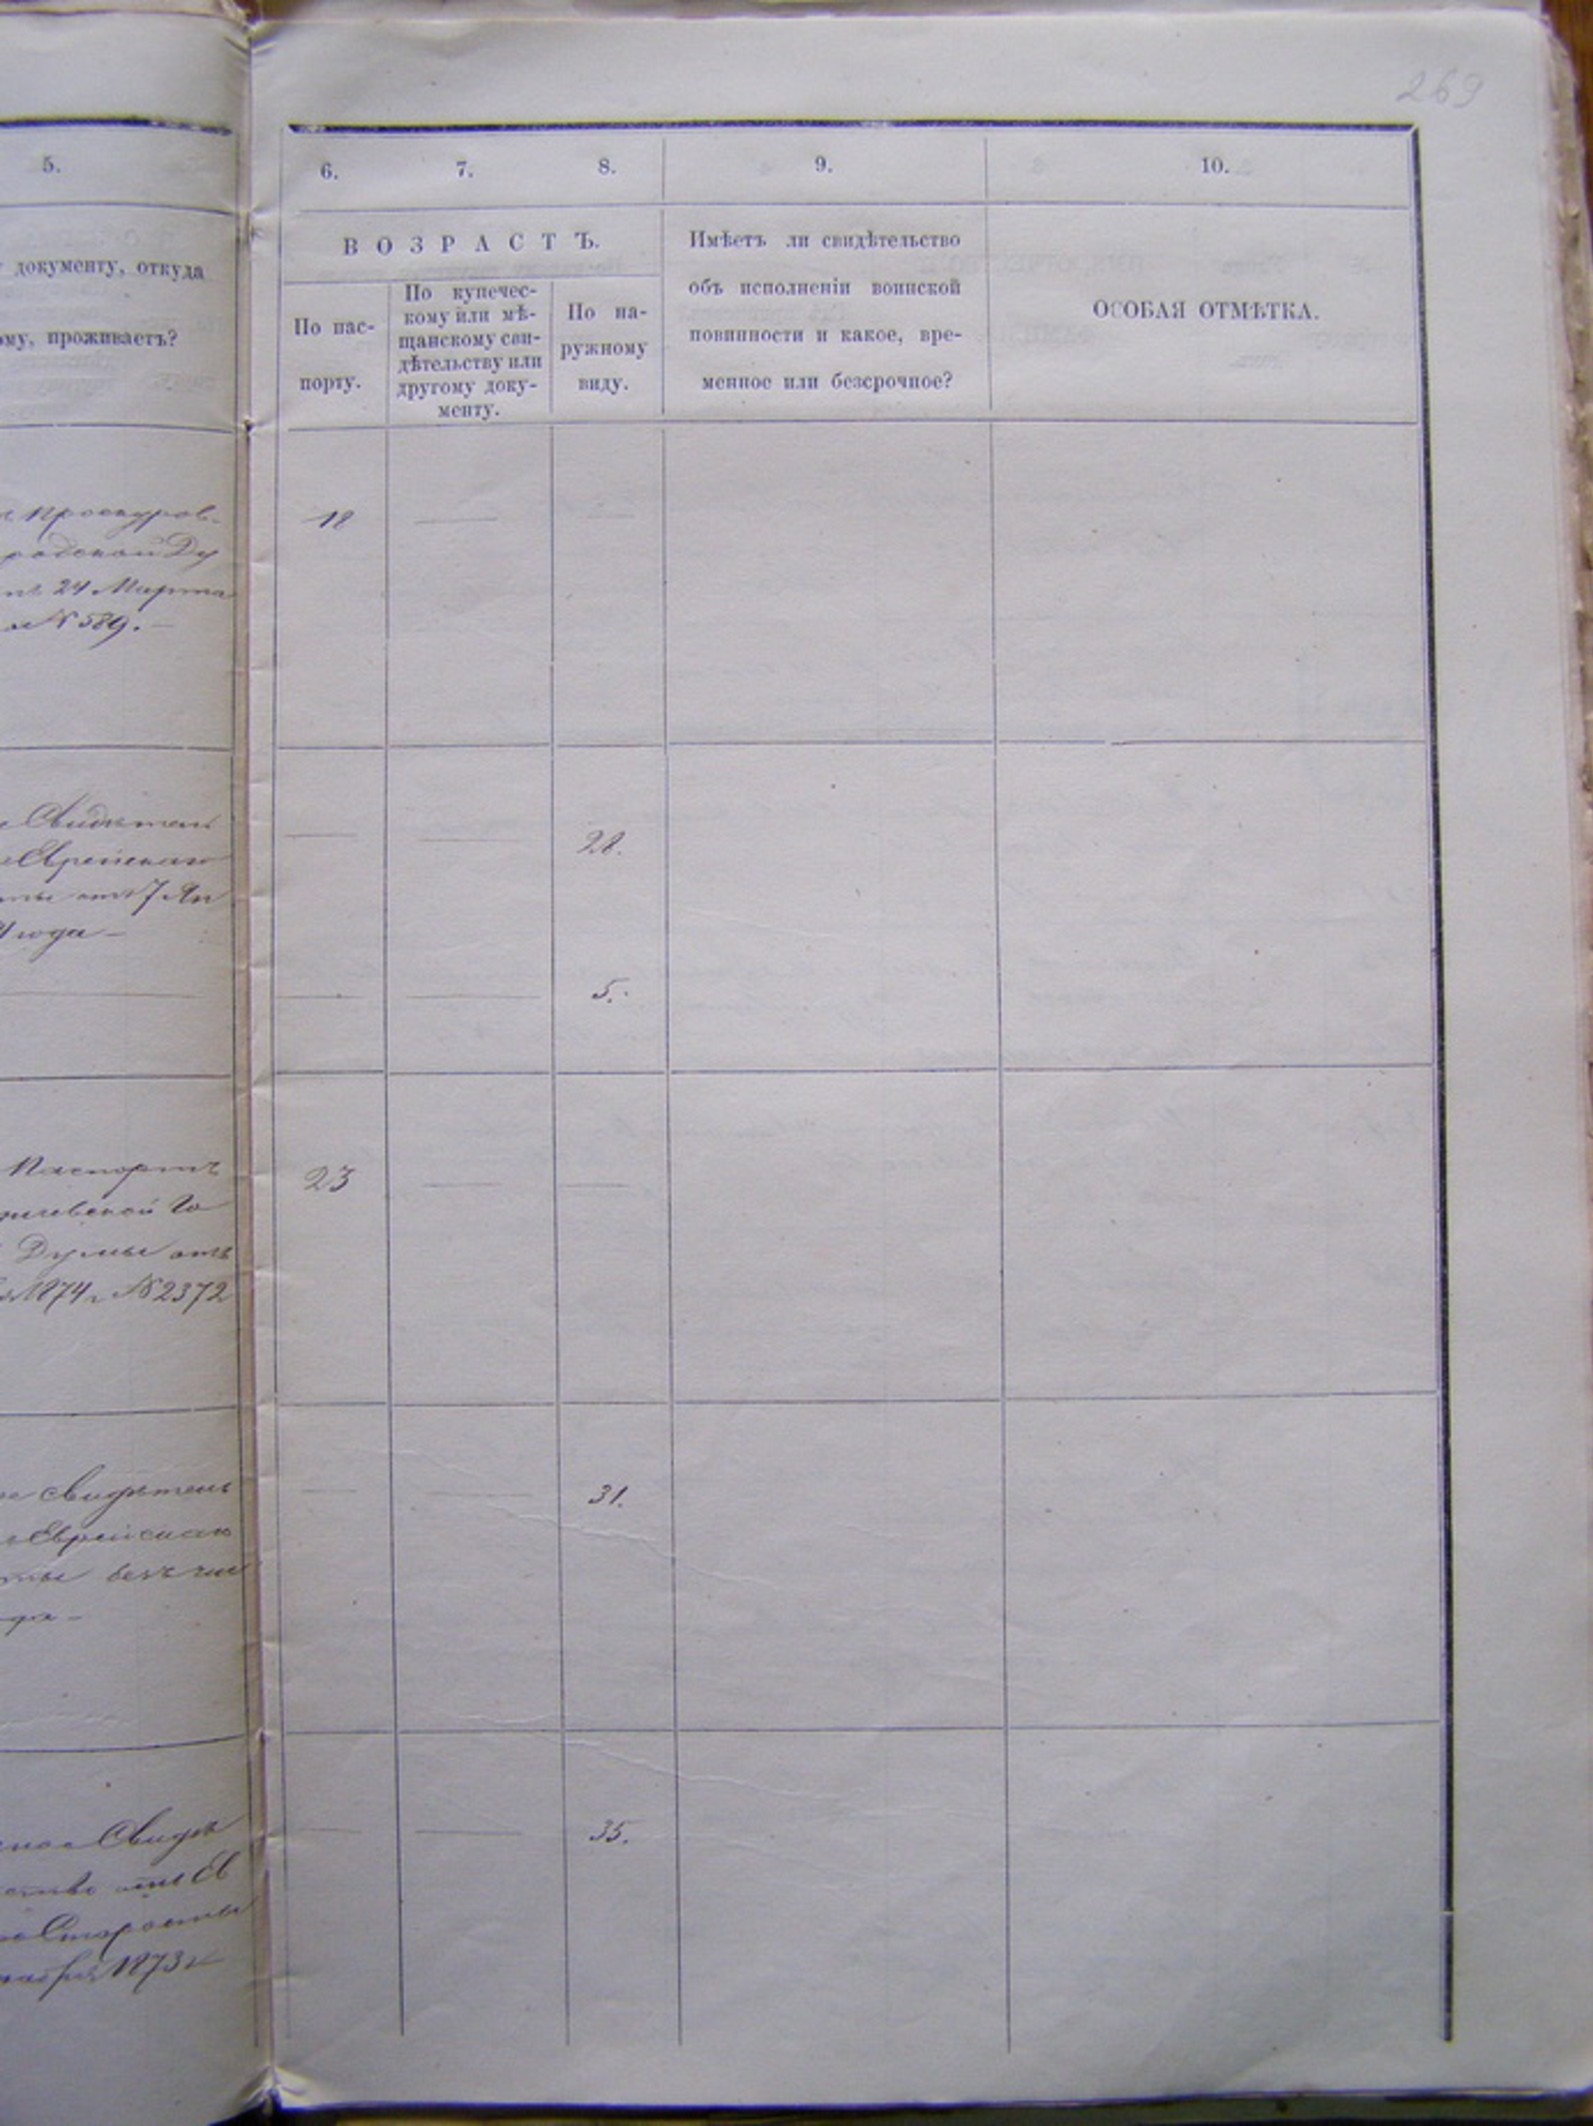 269
5.
6.
7.
8.
9.
10.
документу, откуда
ому, проживаетъ?
ВОЗРАСТЪ.
По пас-
порту.
По купечес-
кому или мѣ-
щанскому сви-
дѣтельству или
другому доку-
менту.
По на-
ружному
виду.
Имѣетъ ли свидѣтельство
объ исполненіи воинской
повинности и какое, вре-
менное или безсрочное?
ОСОБАЯ ОТМѢТКА.
Проскуров-
родской Ду
24 Марта
№ 589. —
18 — —
Свидѣтел
Еврейскаго
отъ 7 Ап
года —
— — 28.
— — 5.
Паспортъ
Го
Думы отъ
1874 г. № 2372
23 — —
свидѣтель
Еврейскаго
безъ чис
— — 31.
Свидѣ
ство отъ Ев
Старосты
1873 г.
— — 35.